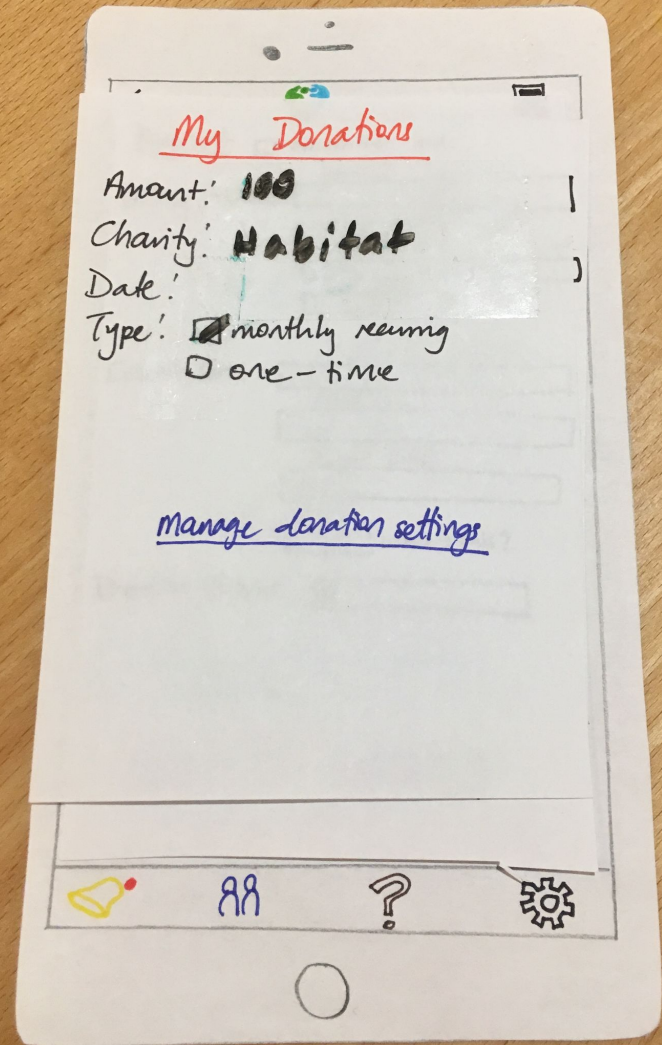 My Donations
Amount: 100
Charity: Habitat
Date:
Type: monthly recurring
one-time
manage donation settings
?